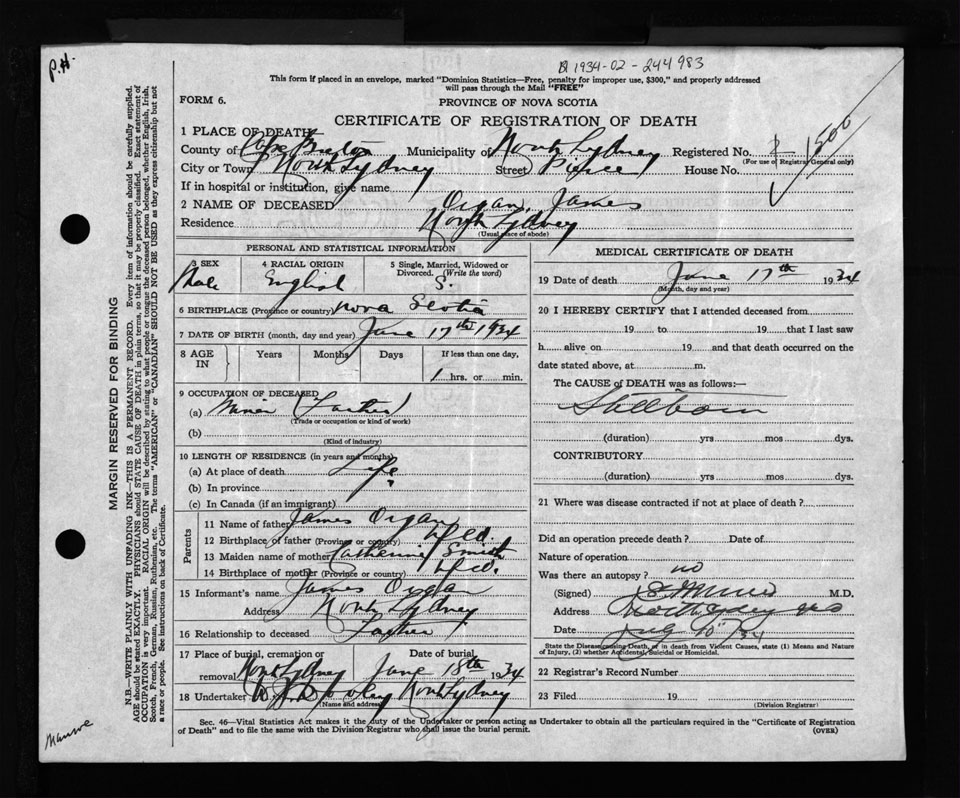 P.H.
1934-02-244983
This form if placed in an envelope, marked "Dominion Statistics—Free, penalty for improper use, $300," and properly addressed
will pass through the Mail "FREE"
FORM 6.
PROVINCE OF NOVA SCOTIA
CERTIFICATE OF REGISTRATION OF DEATH
1 PLACE OF DEATH—
County of Cape Breton Municipality of North Sydney Registered No.
(For use of Registrar General only)
City or Town North Sydney Street Pierce House No.
If in hospital or institution, give name
2 NAME OF DECEASED Organ, James
Residence North Sydney
(Usual place of abode)
PERSONAL AND STATISTICAL INFORMATION
3 SEX 4 RACIAL ORIGIN 5 Single, Married, Widowed or Divorced. (Write the word)
Male English S.
6 BIRTHPLACE (Province or country) Nova Scotia
7 DATE OF BIRTH (month, day and year) June 17th 1934
8 AGE IN Years Months Days If less than one day,
1 hrs. or min.
9 OCCUPATION OF DECEASED
(a) Miner (Father)
(Trade or occupation or kind of work)
(b)
(Kind of industry)
10 LENGTH OF RESIDENCE (in years and months)
(a) At place of death Life
(b) In province
(c) In Canada (if an immigrant)
Parents
11 Name of father James Organ
12 Birthplace of father (Province or country) Nfld.
13 Maiden name of mother Catherine Smith
14 Birthplace of mother (Province or country) Nfld.
15 Informant's name James Organ
Address North Sydney
16 Relationship to deceased Father
17 Place of burial, cremation or removal North Sydney Date of burial June 18th 1934
18 Undertaker North Sydney
(Name and address)
MEDICAL CERTIFICATE OF DEATH
19 Date of death June 17th 1934
(Month, day and year)
20 I HEREBY CERTIFY that I attended deceased from
19 to 19 that I last saw
h alive on 19 and that death occurred on the
date stated above, at m.
The CAUSE of DEATH was as follows:—
Stillborn
(duration) yrs mos dys.
CONTRIBUTORY
(duration) yrs mos dys.
21 Where was disease contracted if not at place of death?
Did an operation precede death? Date of
Nature of operation
Was there an autopsy? no
(Signed) M.D.
Address North Sydney NS
Date July 10 '34
State the Disease causing Death, or in death from Violent Causes, state (1) Means and Nature
of Injury, (2) whether Accidental, Suicidal or Homicidal.
22 Registrar's Record Number
23 Filed 19
(Division Registrar)
Sec. 46—Vital Statistics Act makes it the duty of the Undertaker or person acting as Undertaker to obtain all the particulars required in the "Certificate of Registration
of Death" and to file the same with the Division Registrar who shall issue the burial permit.
(OVER)
MARGIN RESERVED FOR BINDING
N.B.—WRITE PLAINLY WITH UNFADING INK—THIS IS A PERMANENT RECORD. Every item of information should be carefully supplied.
AGE should be stated EXACTLY. PHYSICIANS should STATE CAUSE OF DEATH in plain terms, so that it may be properly classified. Exact statement of
OCCUPATION is very important. RACIAL ORIGIN will be described by stating to what people or tongue the deceased person belonged, whether English, Irish,
Scotch, French, German, Russian, Ruthenian, etc. The terms "AMERICAN" or "CANADIAN" SHOULD NOT BE USED as they express citizenship but not
a race or people. See instructions on back of Certificate.